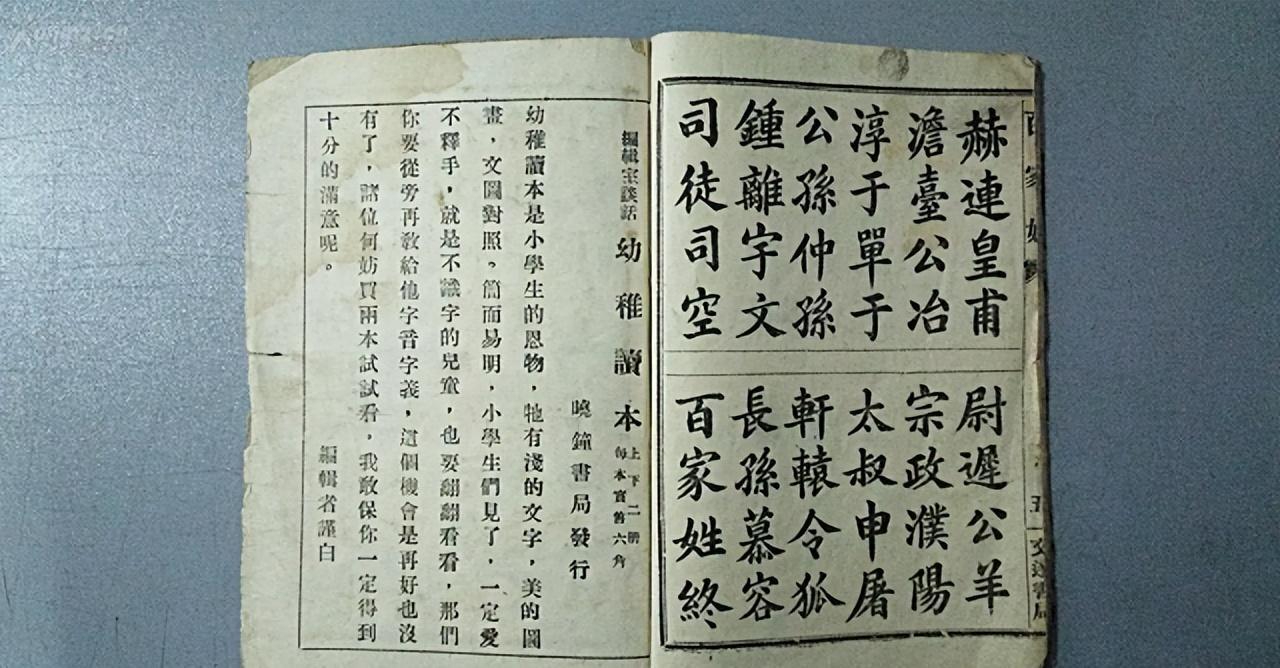 百家姓
赫連皇甫
尉遲公羊
澹臺公冶
宗政濮陽
淳于單于
太叔申屠
公孫仲孫
軒轅令狐
鍾離宇文
長孫慕容
司徒司空
百家姓終
編輯室談話
幼稚讀本
上下二册
每本實售六角
曉鐘書局發行
幼稚讀本是小學生的恩物，牠有淺的文字，美的圖
畫，文圖對照。簡而易明，小學生們見了，一定愛
不釋手，就是不識字的兒童，也要翻翻看看，那們
你要從旁再教給他字音字義，這個機會是再好也沒
有了，諸位何妨買兩本試試看，我敢保你一定得到
十分的滿意呢。
編輯者謹白